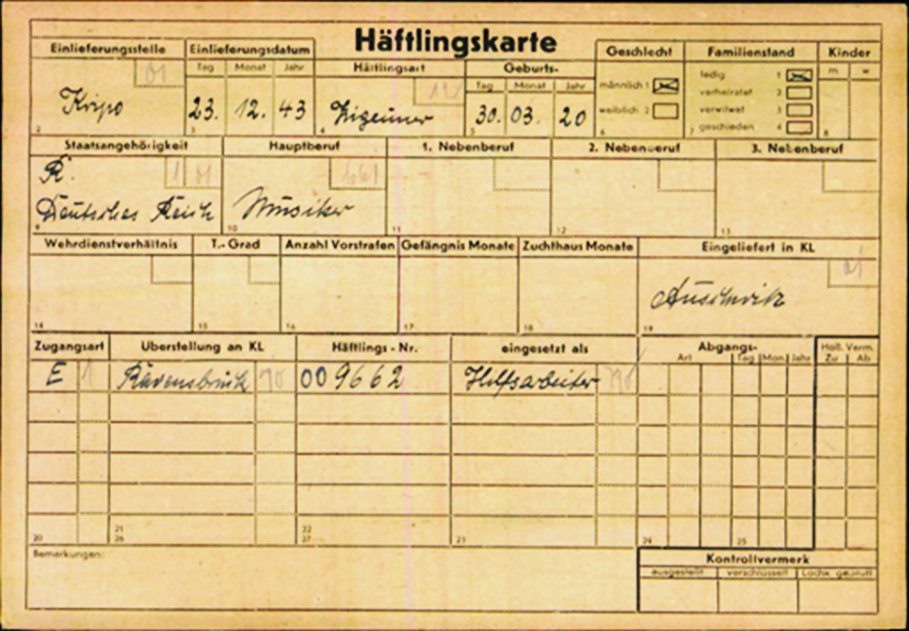 Häftlingskarte
Einlieferungsstelle Einlieferungsdatum Geschlecht Familienstand Kinder
Tag Monat Jahr Häftlingsart Geburts-
Tag Monat Jahr
01
männlich 1 ledig 1 m w
verheiratet 2
weiblich 2 verwitwet 3
geschieden 4
Kripo 23. 12. 43 Zigeuner 30. 03. 20
2 3 4 5 6 7 8
Staatsangehörigkeit Hauptberuf 1. Nebenberuf 2. Nebenberuf 3. Nebenberuf
R.
Deutsches Reich Musiker
9 10 11 12 13
Wehrdienstverhältnis T.-Grad Anzahl Vorstrafen Gefängnis Monate Zuchthaus Monate Eingeliefert in KL
Auschwitz
14 15 16 17 18 19
Zugangsart Überstellung an KL Häftlings-Nr. eingesetzt als Abgangs- Holl. Verm.
Art Tag Mon. Jahr Zu Ab
E 1 Ravensbrück 70 009662 Hilfsarbeiter
21 22
20 26 27 23 24 25
Bemerkungen: Kontrollvermerk
ausgestellt verschlüsselt Lochk. geprüft